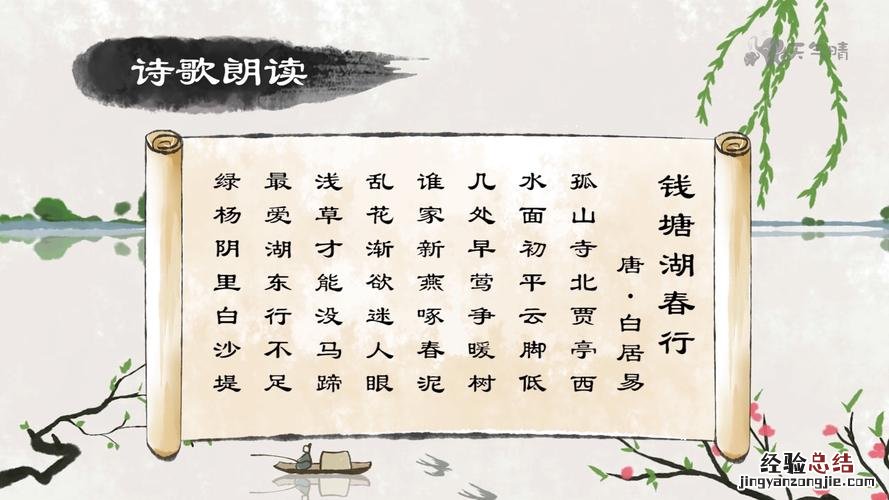 诗歌朗读
钱塘湖春行
唐·白居易
孤山寺北贾亭西
水面初平云脚低
几处早莺争暖树
谁家新燕啄春泥
乱花渐欲迷人眼
浅草才能没马蹄
最爱湖东行不足
绿杨阴里白沙堤
经验总结
jingyanzongjie.com